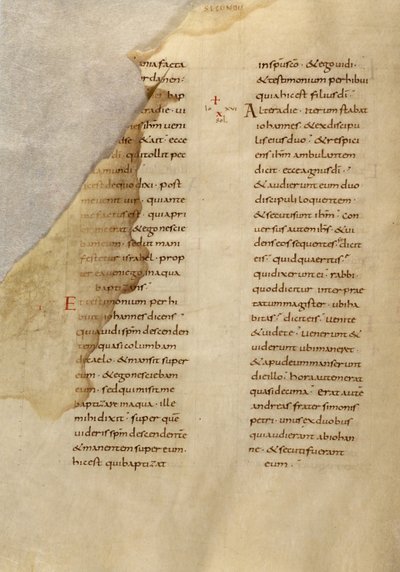 SECONDU
onia facta
rdanen·
bap
radie· vi
ihm veni
& ait· ecce
di· qui tollit pec
mundi·
est de quo dixi· post
me venit vir· qui ante
me factus est· quia pri
or me erat· & ego nescie
bam eum· sed ut mani
festetur israhel· prop
ter ea veni ego in aqua
baptizans·
Et testimonium per hi
buit iohannes dicens·
quia vidi spm descenden
tem quasi columbam
de caelo· & mansit super
eum· & ego nesciebam
eum· sed qui misit me
baptizare in aqua· ille
mihi dixit· super quē
videris spm descendentē
& manentem super eum·
hic est qui baptizat
lo XVI
sol·
in spu sco· & ego vidi·
& testimonium perhibui
quia hic est filius di·
Altera die· iterum stabat
iohannes· & ex discipu
lis eius duo· & respici
ens ihm ambulantem
dicit· ecce agnus di·
& audierunt eum duo
discipuli loquentem·
& secuti sunt ihm· con
versus autem ihs· & vi
dens eos sequentes· dicit
eis· quid quaeritis·
qui dixerunt ei· rabbi
quod dicitur inter prae
tatum magister· ubi ha
bitas· dicit eis· venite
& videte· venerunt &
viderunt ubi maneret·
& apud eum manserunt
die illo· hora autem erat
quasi decima· Erat autē
andreas frater simonis
petri· unus ex duobus
qui audierant ab iohan
ne· & secuti fuerant
eum·